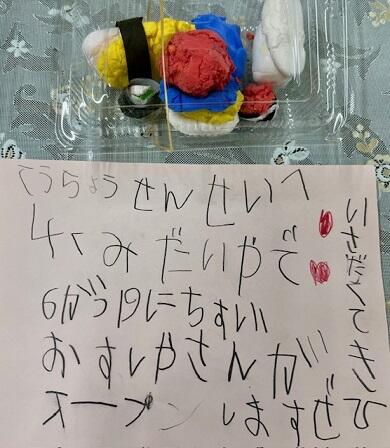 こうちょうせんせいへ
4くみだいやで
6がつ19にちすい
おすしやさんが
オープンしますぜひ
きてください